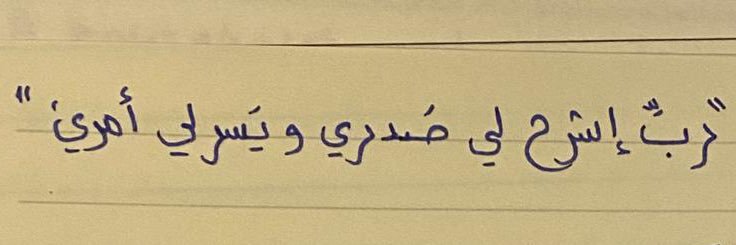 "ربّ إشرح لي صَدري ويَسر لي أمري"